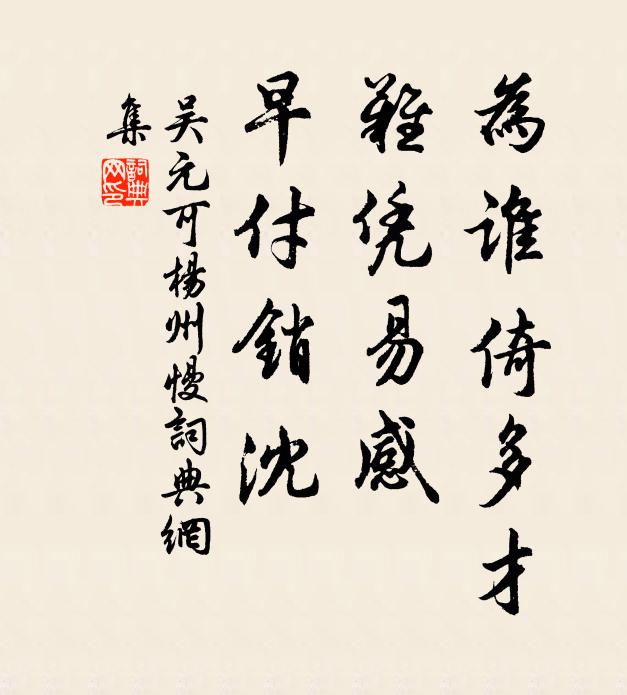 為誰倚多才
難凭易感
早付銷沈
吴元可楊州慢詞典網
集
詞典
网印